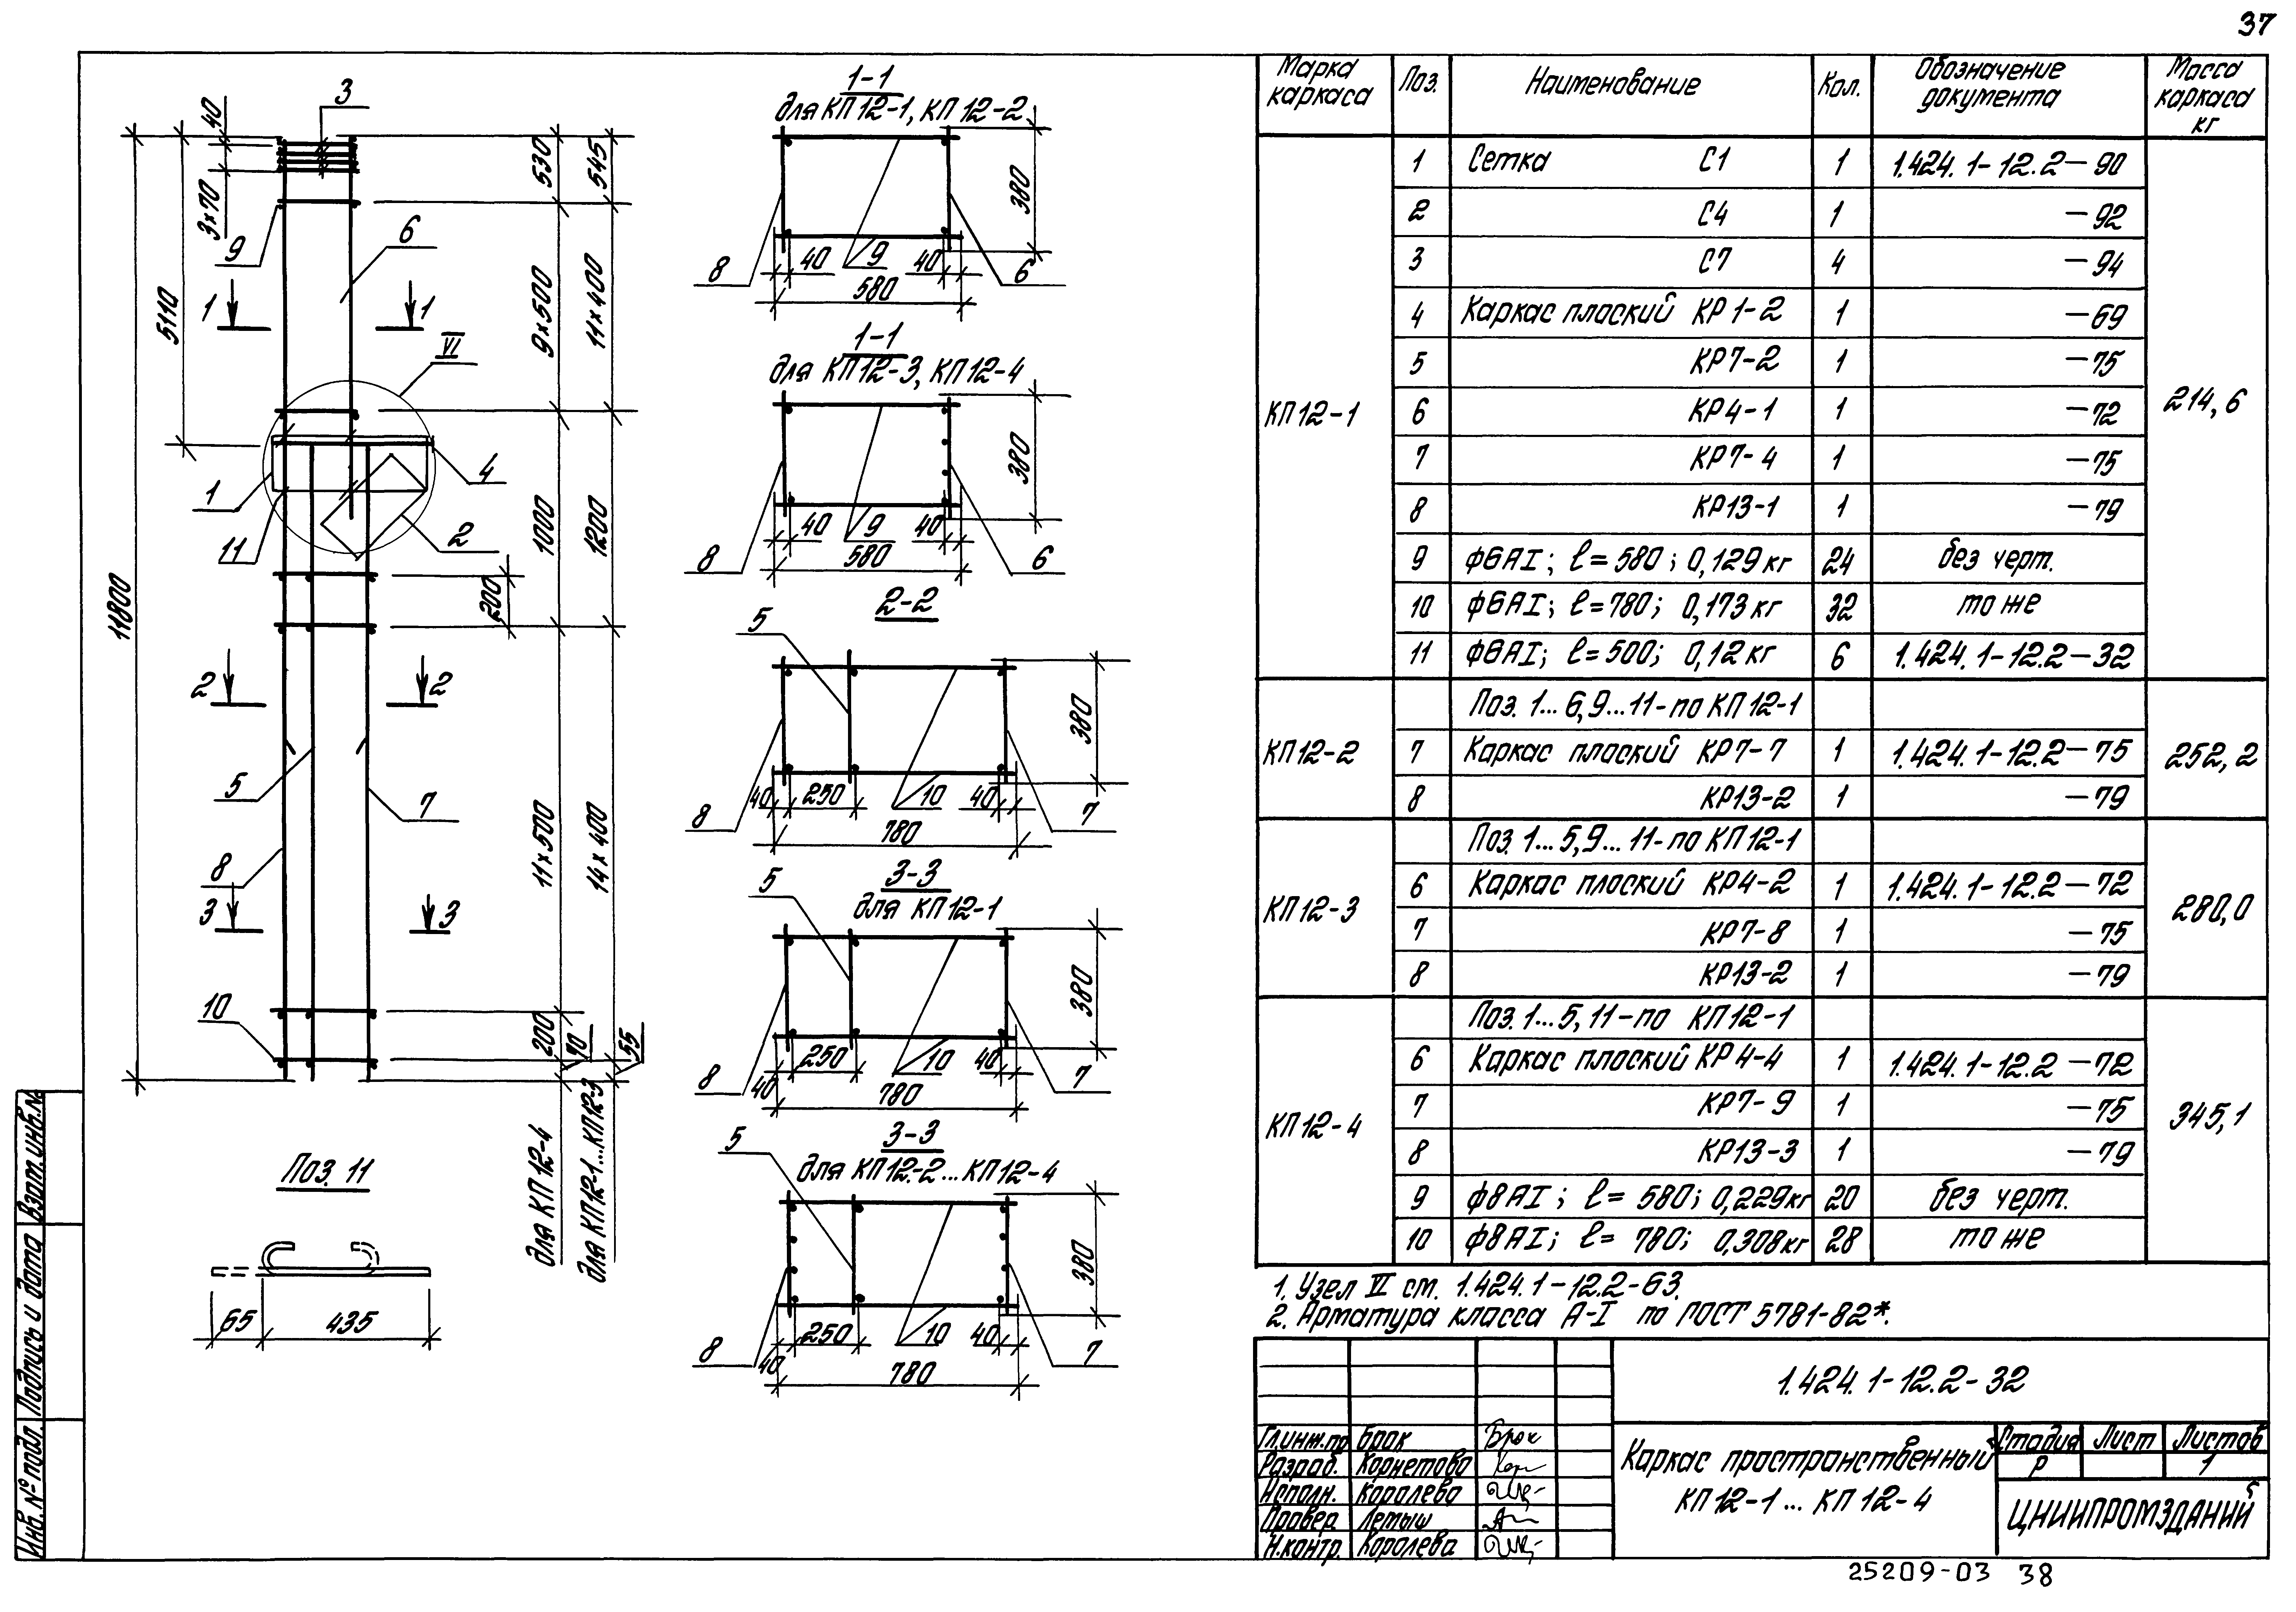 37
3
40
5110
3×70
9
6
1
1
VI
1
4
11
2
11800
530
545
9×500
11×400
1000
1200
200
2
2
5
7
11×500
14×400
8
3
3
10
200
70
55
для КП12-4
для КП12-1...КП12-3
Поз. 11
65
435
1-1
для КП12-1, КП12-2
380
8
40
9
40
6
580
1-1
для КП12-3, КП12-4
380
8
40
9
40
6
580
2-2
5
380
8
40
250
10
40
7
780
3-3
для КП12-1
5
380
8
40
250
10
40
7
780
3-3
для КП12-2...КП12-4
5
380
8
40
250
10
40
7
780
Марка каркаса Поз. Наименование Кол. Обозначение документа Масса каркаса кг
КП12-1 214,6
1 Сетка С1 1 1.424.1-12.2-90
2 С4 1 -92
3 С7 4 -94
4 Каркас плоский КР1-2 1 -69
5 КР7-2 1 -75
6 КР4-1 1 -72
7 КР7-4 1 -75
8 КР13-1 1 -79
9 ф6АI; ℓ=580; 0,129кг 24 без черт.
10 ф6АI; ℓ=780; 0,173кг 32 то же
11 ф6АI; ℓ=500; 0,12кг 6 1.424.1-12.2-32
КП12-2 252,2
Поз. 1...6,9...11-по КП12-1
7 Каркас плоский КР7-7 1 1.424.1-12.2-75
8 КР13-2 1 -79
КП12-3 280,0
Поз. 1...5,9...11-по КП12-1
6 Каркас плоский КР4-2 1 1.424.1-12.2-72
7 КР7-8 1 -75
8 КР13-2 1 -79
КП12-4 345,1
Поз. 1...5,11-по КП12-1
6 Каркас плоский КР4-4 1 1.424.1-12.2-72
7 КР7-9 1 -75
8 КР13-3 1 -79
9 ф8АI; ℓ=580; 0,229кг 20 без черт.
10 ф8АI; ℓ=780; 0,308кг 28 то же
1. Узел VI см. 1.424.1-12.2-63.
2. Арматура класса А-I по ГОСТ 5781-82*.
1.424.1-12.2-32
Гл.инж.пр Брок Брок
Разраб. Корнетова Кор
Исполн. Королева
Провер. Летыш
Н.контр. Королева
Каркас пространственный
КП12-1...КП12-4
Стадия Лист Листов
Р 1
ЦНИИПРОМЗДАНИЙ
Инв.№ подл. Подпись и дата Взам.инв.№
25209-03 38